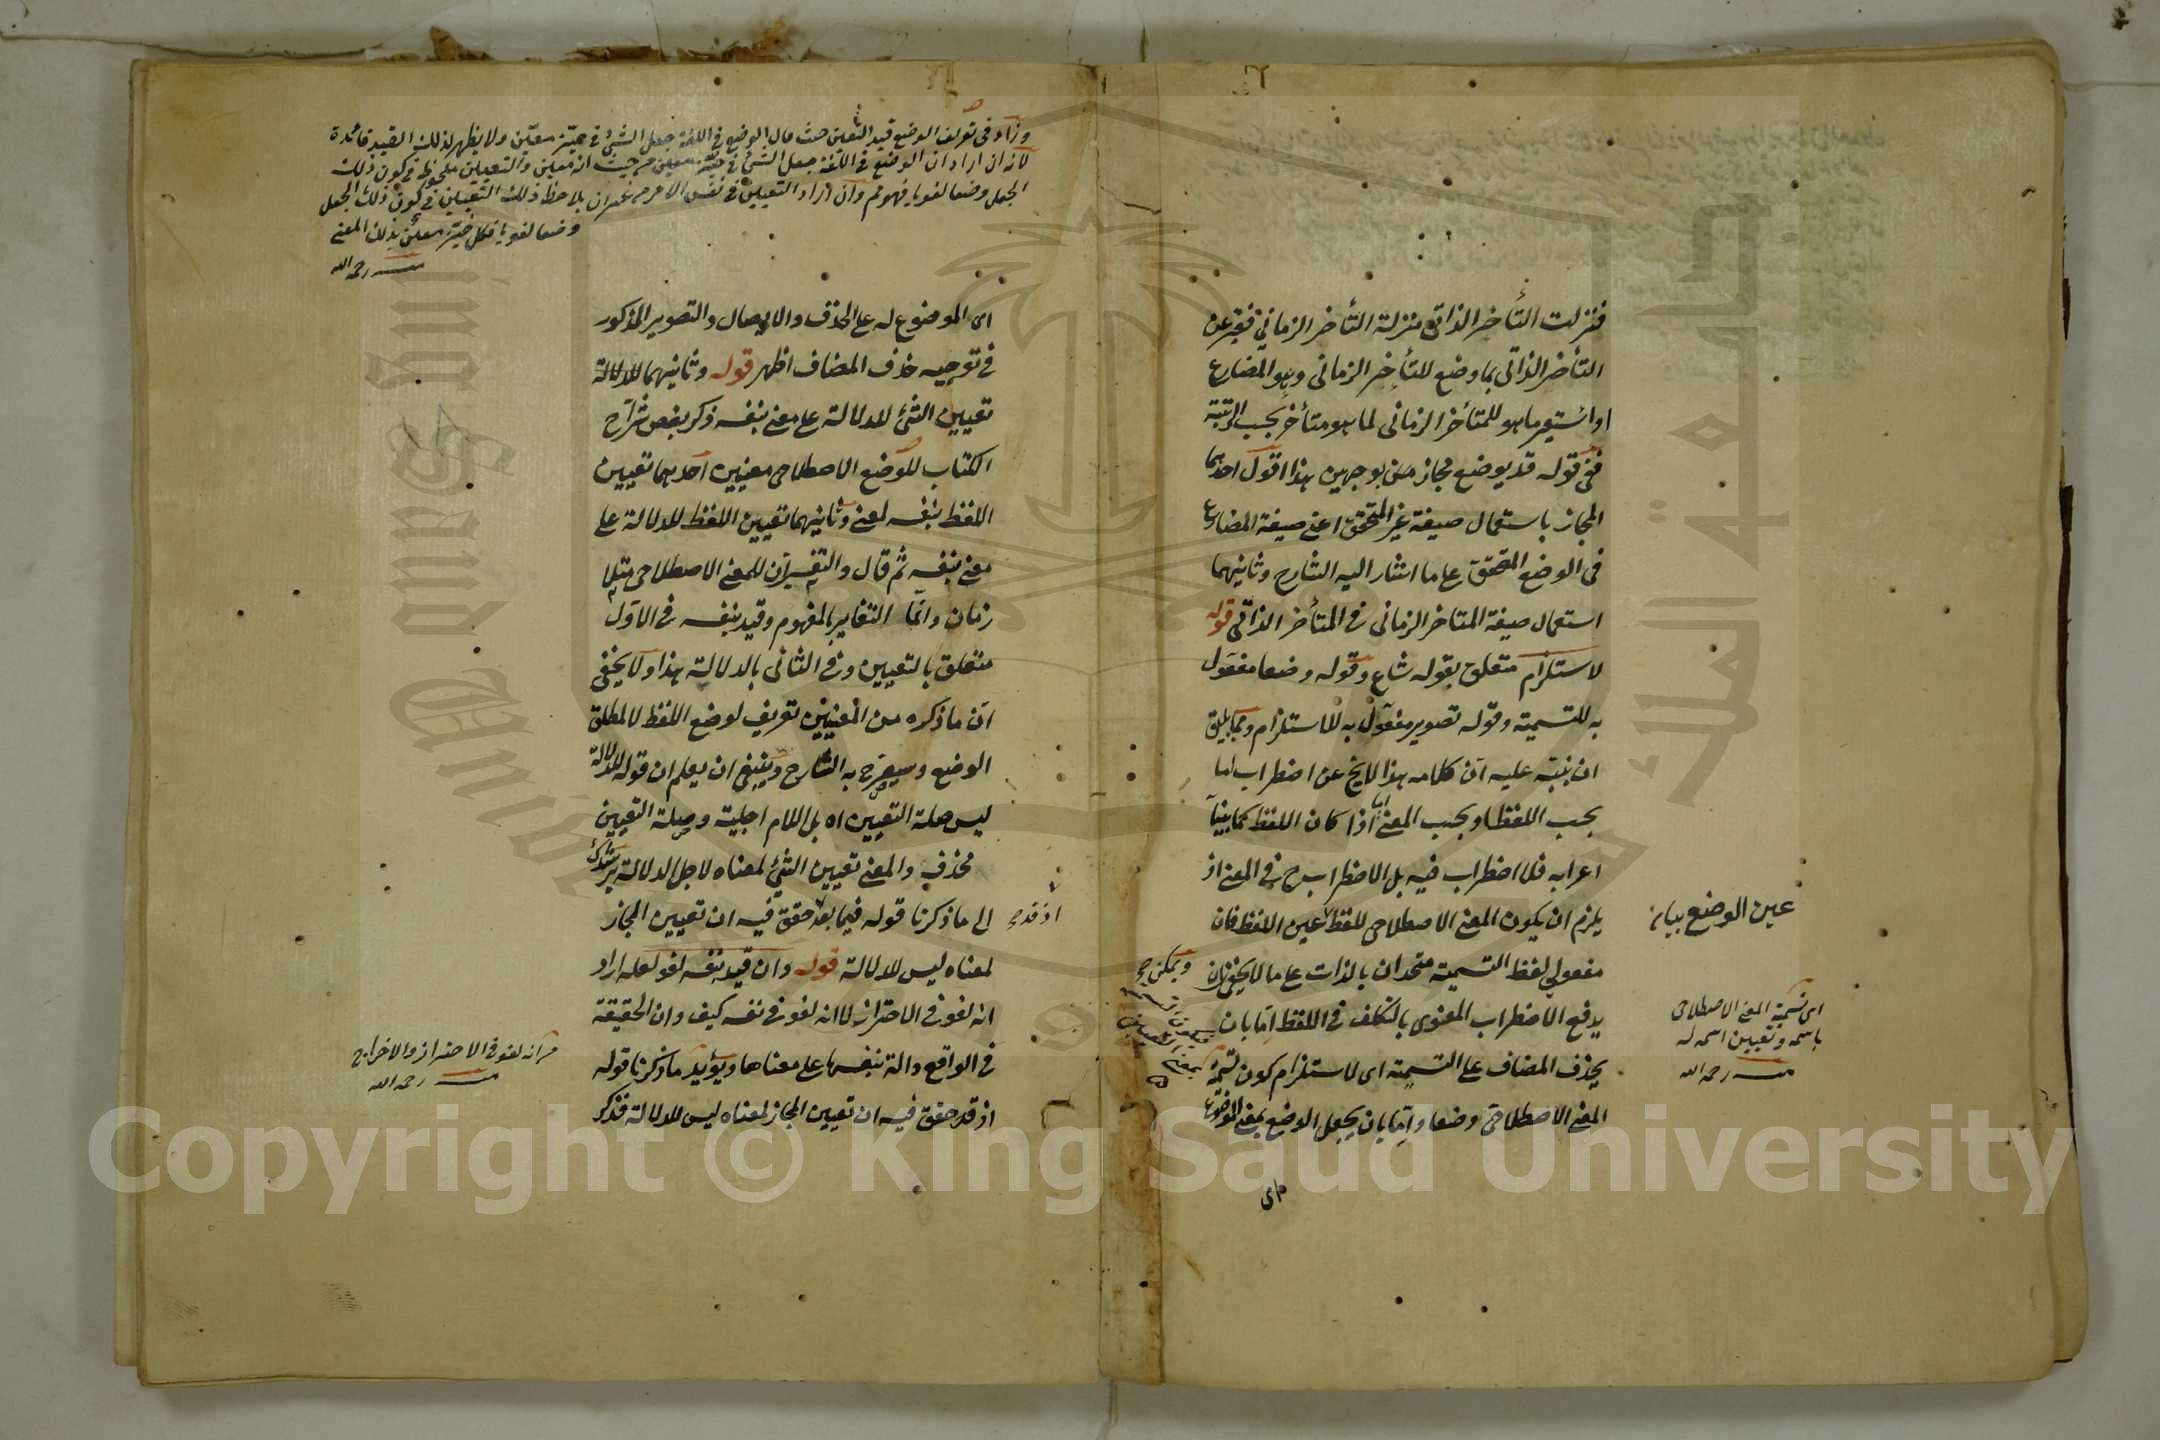 فنزلت التأخر الذاتى منزلة التأخر الزمانى فعبر عن
التأخر الذاتى بما وضع للتأخر الزمانى وهو المضارع
او استعير ما هو للمتأخر الزمانى لما هو متأخر بحسب الرتبة
ففى قوله قد يوضع مجاز من بوجهين هذا اقول احدهما
المجاز باستعمال صيغة غير المتحقق اعنى صيغة المضارع
فى الوضع المتحقق على ما اشار اليه الشارح وثانيهما
استعمال صيغة المتاخر الزمانى فى المتأخر الذاتى قوله
لاستلزام متعلق بقوله شاع وقوله وضعا مفعول
به للتسمية وقوله تصوير مفعول به للاستلزام ومما يليق
ان ينبه عليه ان كلامه هذا لا يخ عن اضطراب اما
بحسب اللفظ او بحسب المعنى اذا كان اللفظ كما بينا
اعرابه فلا اضطراب فيه بل الاضطراب ح فى المعنى اذ
يلزم ان يكون المعنى الاصطلاحى للفظ عين اللفظ فان
مفعولى لفظ التسمية متحدان بالذات على ما لا يخفى
يدفع الاضطراب المعنوى بالتكلف فى اللفظ اما بان
يحذف المضاف على التسمية اى لاستلزام كون تسمية
المعنى الاصطلاحى وضعا واما بان يجعل الوضع بمعنى الموضوع
عين الوضع بيانه
اى تسمية المعنى الاصطلاحى
باسمه وتعيين اسمه له
منه رحمه الله
ويمكن صح
اى
وزاد فى تعريف الوضع قيد التعين حيث قال الوضع فى اللغة جعل الشئ فى حيز معين ولا يظهر لذلك القيد فائدة
لانه ان اراد ان الوضع فى اللغة جعل الشئ فى حيز معين من حيث انه معين والتعيين ملحوظ فى كون ذلك
الجعل وضعا لغويا فهو مم وان اراد التعيين فى نفس الامر من غير ان يلاحظ ذلك التعيين فى كون ذلك الجعل
وضعا لغويا فكل حيز معين بذلك المعنى
منه رحمه الله
اى الموضوع له على الحذف والايصال والتصوير المذكور
فى توجيه حذف المضاف اظهر قوله وثانيهما للدلالة
تعيين الشئ للدلالة على معنى بنفسه ذكر بعض شراح
الكتاب للوضع الاصطلاحى معنيين احدهما تعيين
اللفظ بنفسه لمعنى وثانيهما تعيين اللفظ للدلالة على
معنى بنفسه ثم قال والتفسيران للمعنى الاصطلاحى متلا
زمان وانما التغاير بالمفهوم وقيد بنفسه فى الاول
متعلق بالتعيين وفى الثانى بالدلالة هذا ولا يخفى
ان ما ذكره من المعنيين تعريف لوضع اللفظ لا لمطلق
الوضع وسيصرح به الشارح وينبغى ان يعلم ان قوله للدلالة
ليس صلة التعيين اه بل اللام اجلية وصلة التعيين
محذوف والمعنى تعيين الشئ لمعناه لاجل الدلالة يرشدك
الى ما ذكرنا قوله فيما بعد حقق فيه ان تعيين المجاز
لمعناه ليس للدلالة قوله وان قيد بنفسه لغو لعله اراد
انه لغو فى الاحتراز لا انه لغو فى نفسه كيف وان الحقيقة
فى الواقع دالة بنفسها على معناها ويؤيد ما ذكرنا قوله
اذ قد حقق فيه ان تعيين المجاز لمعناه ليس للدلالة فذكر
اذ قد صح
انه لغو فى الاحتراز والاخراج
منه رحمه الله
Copyright © King Saud University